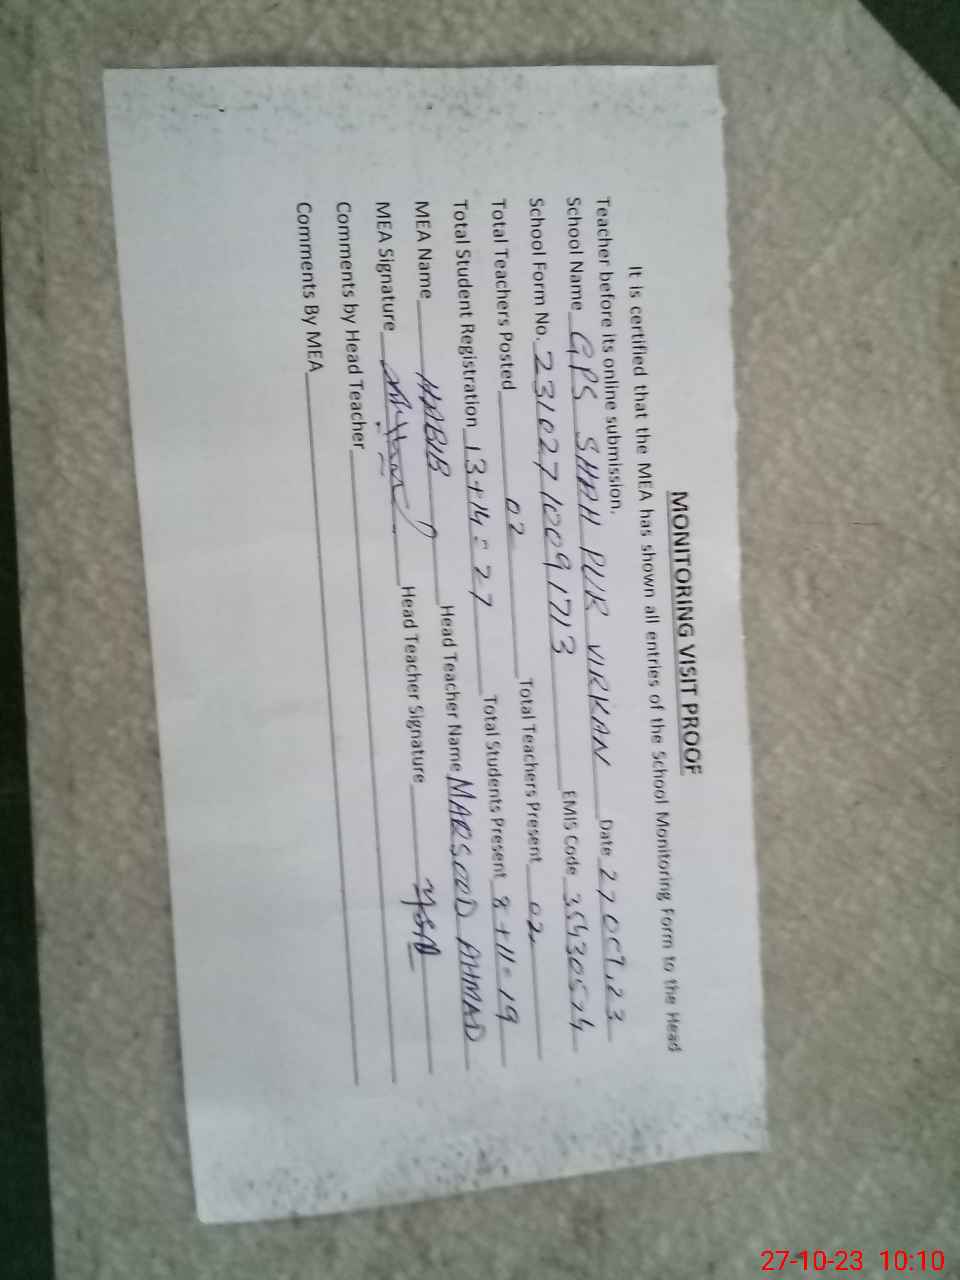 MONITORING VISIT PROOF
It is certified that the MEA has shown all entries of the School Monitoring Form to the Head
Teacher before its online submission.
School Name GPS SHAH PUR VIRKAN Date 27 OCT, 23
School Form No. 23102710091713 EMIS Code 35430524
Total Teachers Posted 02 Total Teachers Present 02
Total Student Registration 13+14=27 Total Students Present 8+11=19
MEA Name HABIB Head Teacher Name MAQSOOD AHMAD
MEA Signature Head Teacher Signature
Comments by Head Teacher
Comments By MEA
27-10-23 10:10